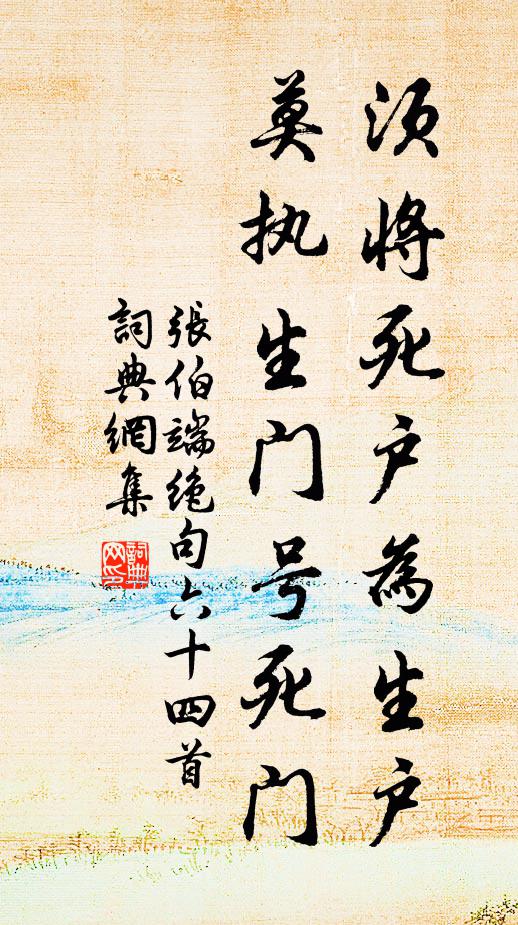 须将死户为生户
莫执生门号死门
張伯端绝句六十四首
詞典網集